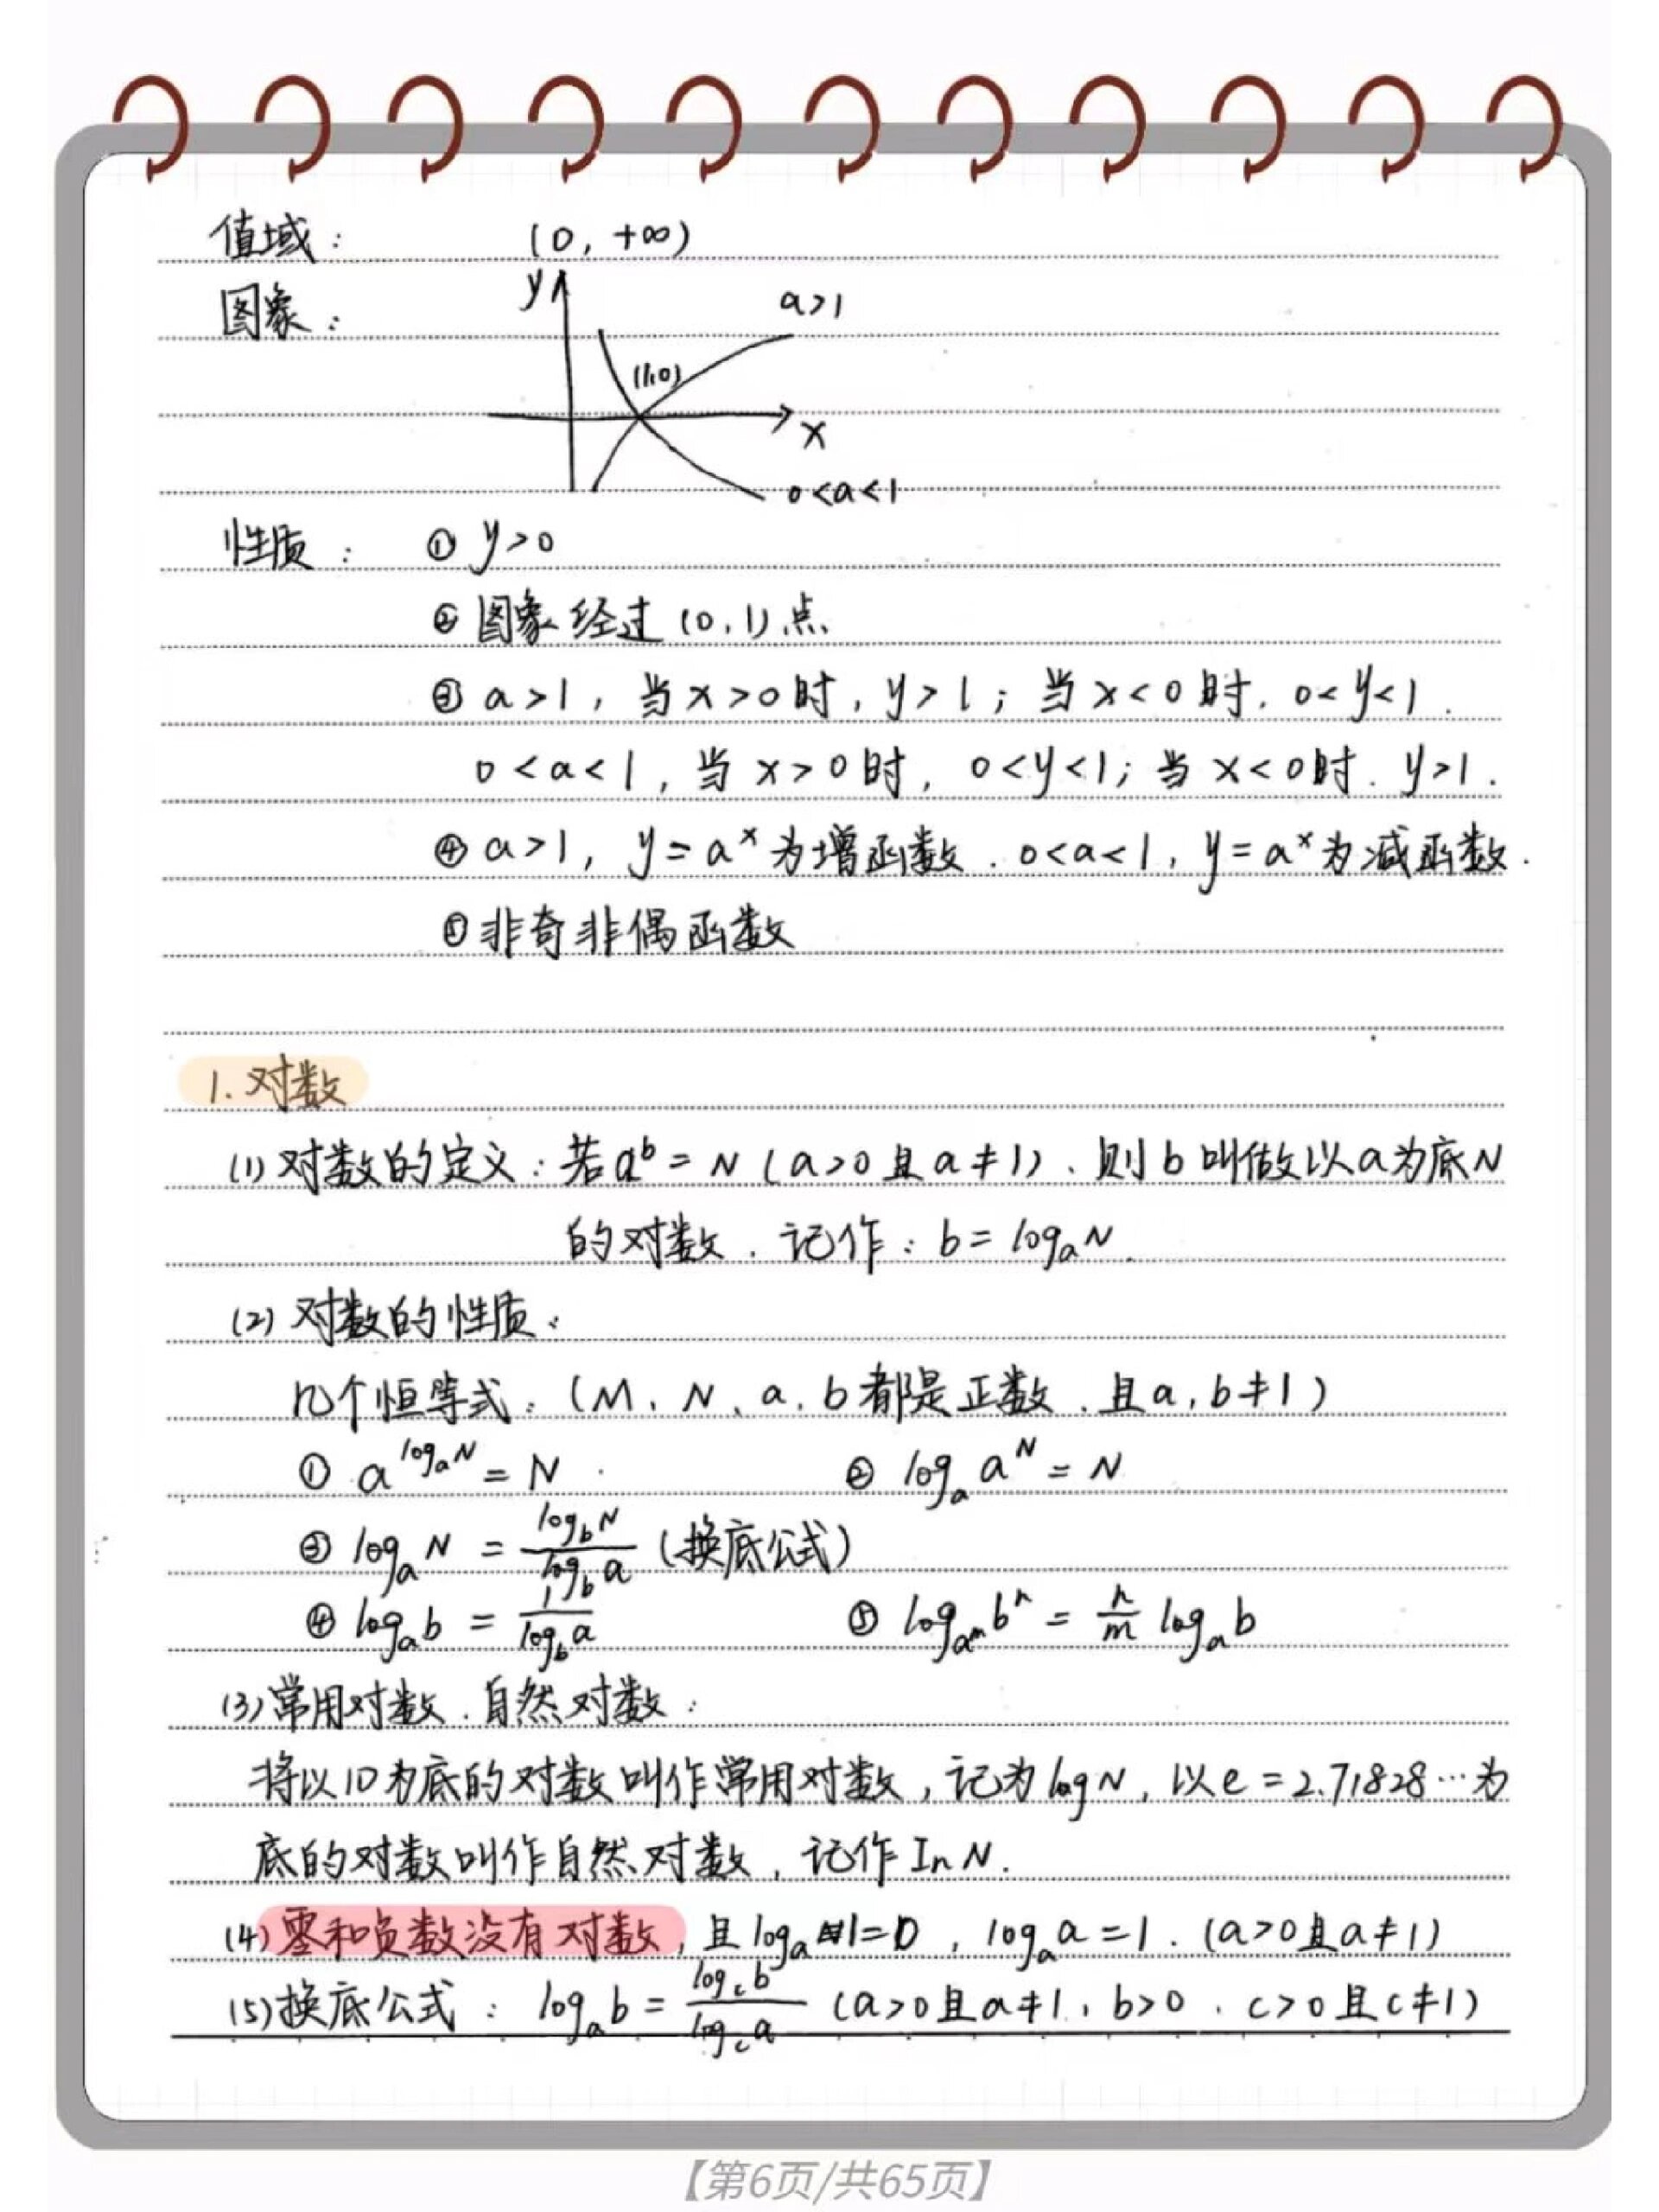 值域： (0, +∞)
图象：
y
a>1
(1,0)
x
0<a<1
性质： ① y>0
② 图象经过 (0,1)点
③ a>1, 当x>0时, y>1; 当x<0时, 0<y<1.
0<a<1, 当x>0时, 0<y<1; 当x<0时, y>1.
④ a>1, y=aˣ为增函数. 0<a<1, y=aˣ为减函数.
⑤ 非奇非偶函数
1. 对数
(1) 对数的定义：若aᵇ=N (a>0且a≠1)、则b叫做以a为底N
的对数. 记作：b=logₐN.
(2) 对数的性质：
几个恒等式：(M、N、a, b都是正数、且a, b≠1)
① a^(logₐN) = N ② logₐa^N = N
③ logₐN = log_b N / log_b a (换底公式)
④ logₐb = 1 / log_b a ⑤ log_(a^m) b^n = n/m logₐb
(3) 常用对数. 自然对数：
将以10为底的对数叫作常用对数, 记为logN, 以e=2.71828…为
底的对数叫作自然对数, 记作InN.
(4) 零和负数没有对数, 且logₐ1=0, logₐa=1. (a>0且a≠1)
(5) 换底公式：logₐb = log_c b / log_c a (a>0且a≠1, b>0, c>0且c≠1)
【第6页/共65页】